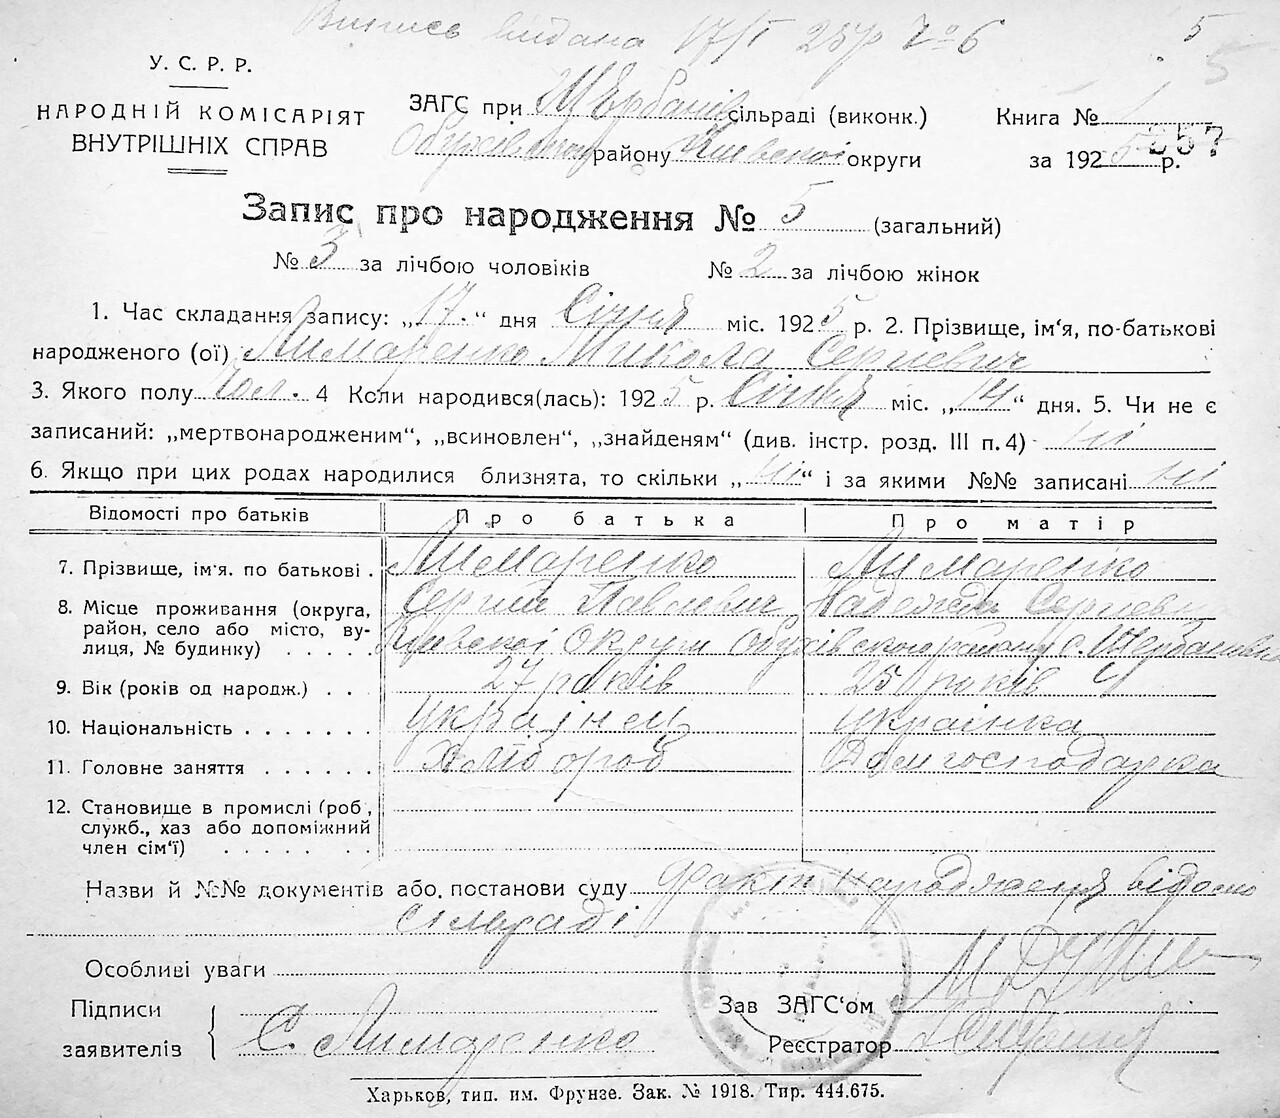 Випись видана 17/I 25 р № 6 5
5
У. С. Р. Р.
НАРОДНІЙ КОМІСАРІЯТ
ВНУТРІШНІХ СПРАВ
ЗАГС при Щербанів сільраді (виконк.)
Обухівському району Київскої округи
Книга № 1
257
за 1925 р.
Запис про народження № 5 (загальний)
№ 3 за лічбою чоловіків № 2 за лічбою жінок
1. Час складання запису: „17.“ дня Січня міс. 1925 р. 2. Прізвище, ім'я, по-батькові
народженого (ої) Лимаренко Микола Сергиевич
3. Якого полу чол. 4 Коли народився(лась): 1925 р. Січня міс. „14“ дня. 5. Чи не є
записаний: „мертвонародженим“, „всиновлен“, „знайденям“ (див. інстр. розд. III п. 4) ні
6. Якщо при цих родах народилися близнята, то скільки „ні“ і за якими №№ записані ні
Відомості про батьків Про батька Про матір
7. Прізвище, ім'я. по батькові . Лимаренко Лимаренко
Сергий Павлович Надежда Сергиевн
8. Місце проживання (округа,
район, село або місто, ву-
лиця, № будинку) . . . . Киевскої Округи Обухівского району с. Щербанівка
9. Вік (років од народж.) . . 27 років 25 років
10. Національність . . . . . . . українец українка
11. Головне заняття . . . . . . Хлібороб Домгосподарка
12. Становище в промислі (роб.,
служб., хаз або допоміжний
член сім'ї) . . . . . . .
Назви й №№ документів або постанови суду Факт народженя відомо
сількраді
Особливі уваги
Підписи
заявителів
С. Лимаренко
Зав ЗАГС'ом
Реєстратор
Харьков, тип. им. Фрунзе. Зак. № 1918. Тир. 444.675.